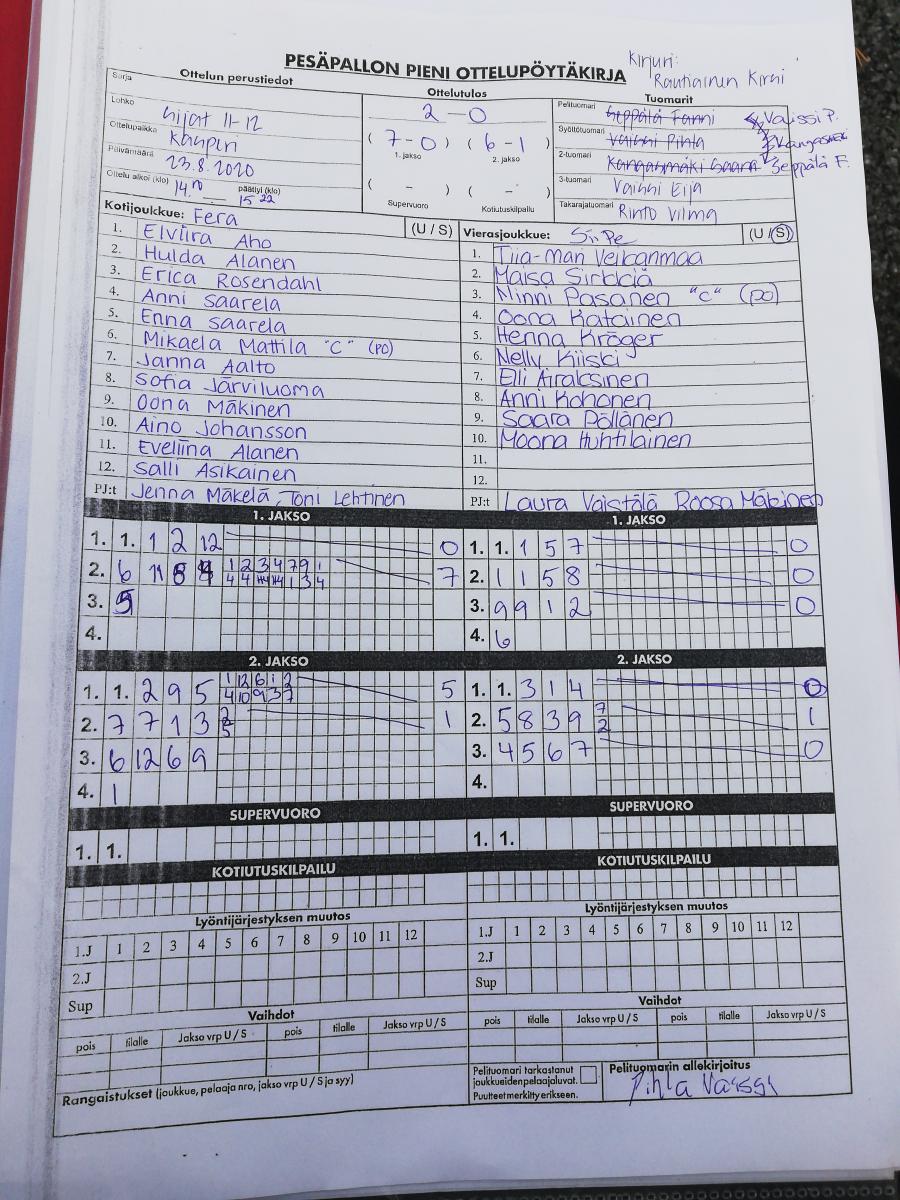 PESÄPALLON PIENI OTTELUPÖYTÄKIRJA
Kirjuri:
Rautiainen Kirsi
Sarja
Ottelun perustiedot
Lohko
Gijat 11-12
Ottelupaikka
Kaupin
Päivämäärä
23.8.2020
Ottelu alkoi (klo) 14.10 päättyi (klo) 15 22
Ottelutulos
2 - 0
( 7 - 0 ) ( 6 - 1 )
1. jakso 2. jakso
( - ) ( - )
Supervuoro Kotiutuskilpailu
Tuomarit
Pelituomari Seppälä Fanni Vaissi P.
Syöttötuomari Vaissi Pihla Kangasmäki
2-tuomari Kangasmäki Saara Seppälä F.
3-tuomari Vaissi Eija
Takarajatuomari Rinto Vilma
Kotijoukkue: Fera (U / S)
1. Elviira Aho
2. Hulda Alanen
3. Erica Rosendahl
4. Anni Saarela
5. Enna Saarela
6. Mikaela Mattila "C" (PO)
7. Janna Aalto
8. Sofia Järviluoma
9. Oona Mäkinen
10. Aino Johansson
11. Eveliina Alanen
12. Salli Asikainen
PJ:t Jenna Mäkelä, Toni Lehtinen
Vierasjoukkue: SiiPe (U / S)
1. Tiia-Mari Veikanmaa
2. Maisa Sirkkiä
3. Minni Pasanen "C" (PO)
4. Oona Katainen
5. Henna Kröger
6. Nelly Kiiski
7. Elli Airaksinen
8. Anni Kohonen
9. Saara Pöllänen
10. Moona Huhtilainen
11.
12.
PJ:t Laura Vaistölä Roosa Mäkinen
1. JAKSO
1. 1. 1 2 12 0
2. 6 11 8 1 2 3 4 7 9 1 7
3. 5
4.
1. JAKSO
1. 1. 1 5 7 0
2. 1 1 5 8 0
3. 9 9 1 2 0
4. 6
2. JAKSO
1. 1. 2 9 5 1 12 6 1 2 5
4 10 9 3 7
2. 7 7 1 3 2 1
5
3. 6 12 6 9
4. 1
2. JAKSO
1. 1. 3 1 4 0
2. 5 8 3 9 7 1
2
3. 4 5 6 7 0
4.
SUPERVUORO
1. 1.
SUPERVUORO
1. 1.
KOTIUTUSKILPAILU
KOTIUTUSKILPAILU
Lyöntijärjestyksen muutos
1.J 1 2 3 4 5 6 7 8 9 10 11 12
2.J
Sup
Lyöntijärjestyksen muutos
1.J 1 2 3 4 5 6 7 8 9 10 11 12
2.J
Sup
Vaihdot
pois tilalle Jakso vrp U / S pois tilalle Jakso vrp U / S
Vaihdot
pois tilalle Jakso vrp U / S pois tilalle Jakso vrp U / S
Rangaistukset (joukkue, pelaaja nro, jakso vrp U / S ja syy)
Pelituomari tarkastanut
joukkueiden pelaajaluvat.
Puutteet merkitty erikseen.
Pelituomarin allekirjoitus
Pihla Vaissi